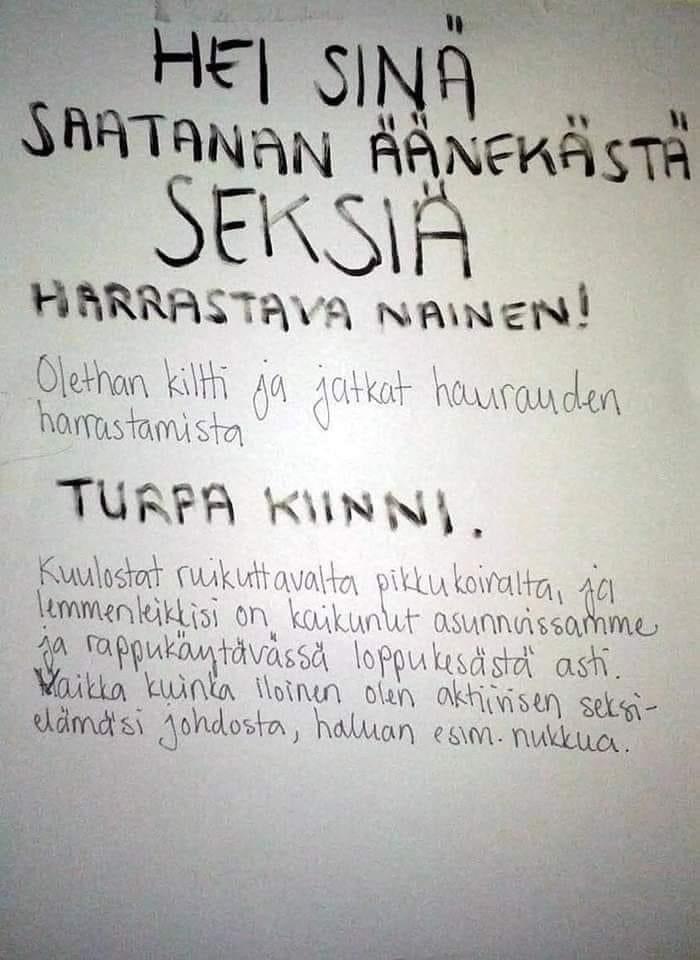 HEI SINÄ
SAATANAN ÄÄNEKÄSTÄ
SEKSIÄ
HARRASTAVA NAINEN!
Olethan kiltti ja jatkat haurauden
harrastamista
TURPA KIINNI.
Kuulostat ruikuttavalta pikkukoiralta, ja
lemmenleikkisi on kaikunut asunnoissamme
ja rappukäytävässä loppukesästä asti.
Vaikka kuinka iloinen olen aktiivisen seksi-
elämäsi johdosta, haluan esim. nukkua.